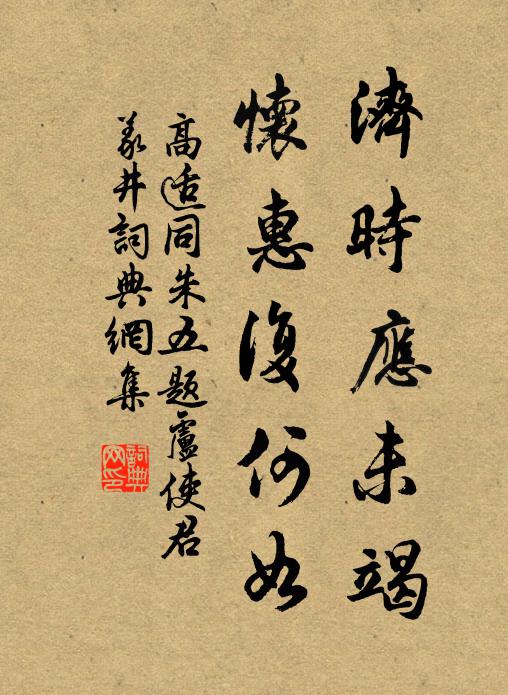 濟時應未竭
懷惠復何如
高适同朱五題盧使君
義井詞典網集
詞典
网印